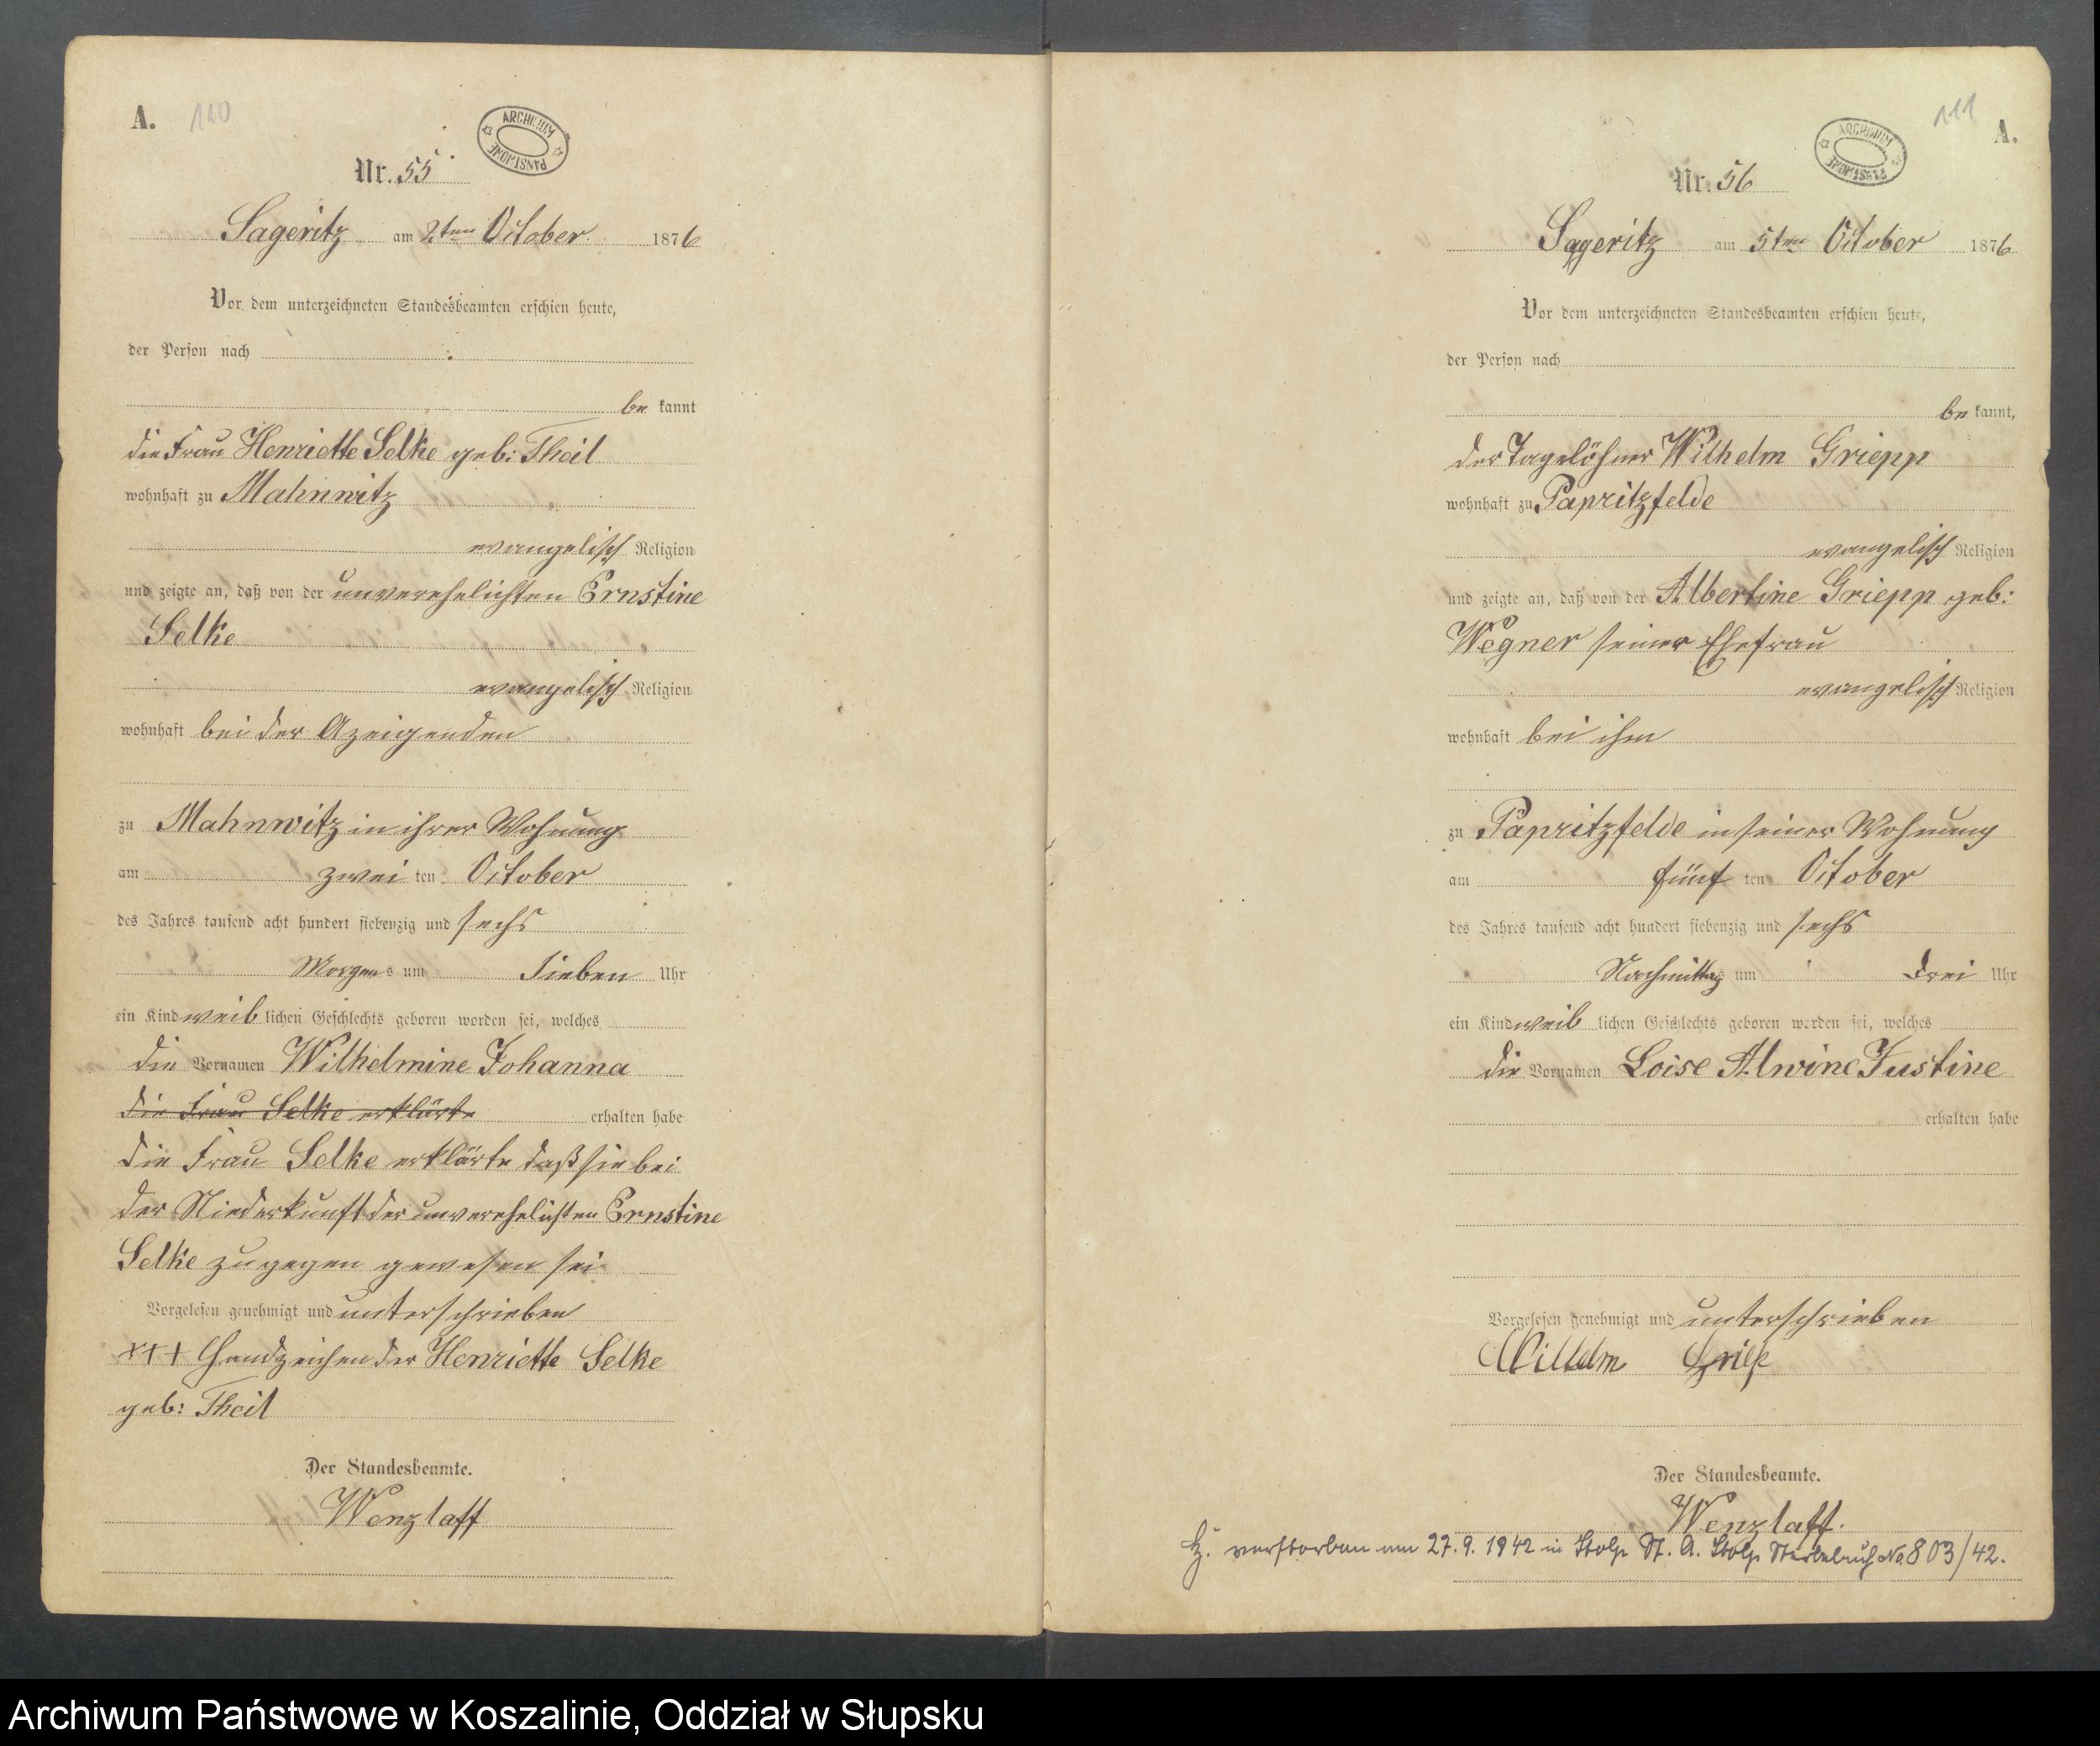 A. 110
ARCHIWUM PAŃSTWOWE
Nr. 55
Sageritz am 2ten October 1876
Vor dem unterzeichneten Standesbeamten erschien heute,
der Person nach
be kannt
die Frau Henriette Selke geb: Theil
wohnhaft zu Mahnwitz
evangelisch Religion
und zeigte an, daß von der unverehelichten Ernstine
Selke
evangelisch Religion
wohnhaft bei der Azeigenden
zu Mahnwitz in ihrer Wohnung
am zwei ten October
des Jahres tausend acht hundert siebenzig und sechs
Morgens um sieben Uhr
ein Kind weiblichen Geschlechts geboren worden sei, welches
die Vornamen Wilhelmine Johanna
die Frau Selke erklärte erhalten habe
die Frau Selke erklärte daß sie bei
der Niederkunft der unverehelichten Ernstine
Selke zugegen gewesen sei
Vorgelesen genehmigt und unterschrieben
+++ Handzeichen der Henriette Selke
geb: Theil
Der Standesbeamte.
Wenzlaff
111 A.
ARCHIWUM PAŃSTWOWE
Nr. 56
Sageritz am 5ten October 1876
Vor dem unterzeichneten Standesbeamten erschien heute,
der Person nach
be kannt,
der Tagelöhner Wilhelm Griepp
wohnhaft zu Papritzfelde
evangelisch Religion
und zeigte an, daß von der Albertine Griepp geb:
Wegner seiner Ehefrau
evangelisch Religion
wohnhaft bei ihm
zu Papritzfelde in seiner Wohnung
am fünf ten October
des Jahres tausend acht hundert siebenzig und sechs
Nachmittags um drei Uhr
ein Kind weiblichen Geschlechts geboren worden sei, welches
die Vornamen Loise Alwine Justine
erhalten habe
Vorgelesen genehmigt und unterschrieben
Wilhelm Griep
Der Standesbeamte.
Wenzlaff.
verstorben am 27.9.1942 in Stolp St. A. Stolp Sterbebuch No 803/42.
Archiwum Państwowe w Koszalinie, Oddział w Słupsku